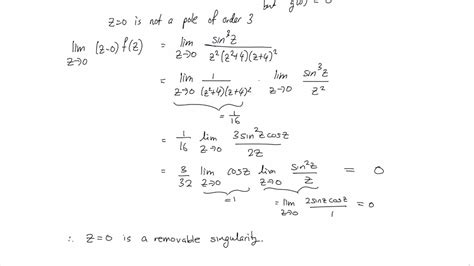 but g(0) = 0
z=0 is not a pole of order 3
lim z→0 (z-0) f(z) = lim z→0 sin³z / z²(z²+4)(z+4)²
= lim z→0 1 / (z²+4)(z+4)² · lim z→0 sin³z / z²
= 1/16
= 1/16 lim z→0 3sin²z cosz / 2z
= 3/32 lim z→0 cosz lim z→0 sin²z / z = 0
=1 = lim z→0 2sinz cosz / 1 = 0
∴ z=0 is a removable singularity.